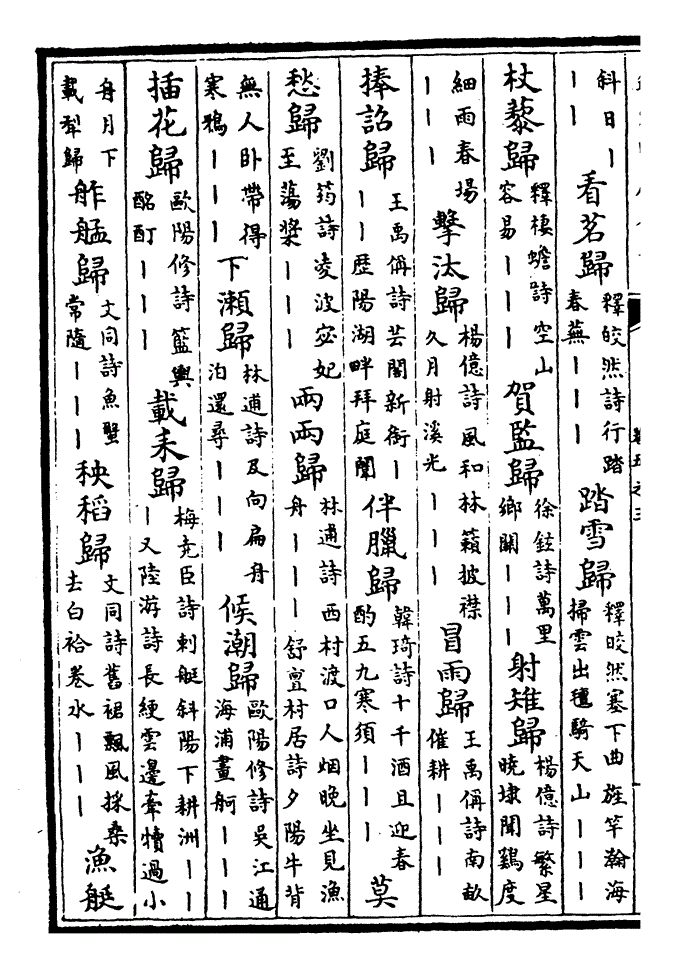 斜日｜｜｜看茗歸釋皎然詩行踏春蕪｜｜｜踏雪歸釋皎然塞下曲旌竿瀚海掃雲出氊騎天山｜｜｜
杖藜歸釋棲蟾詩空山容易｜｜｜賀監歸徐鉉詩萬里鄉關｜｜｜射雉歸楊億詩繁星曉埭聞鷄度
細雨春場｜｜｜擊汰歸楊億詩風和林籟披襟久月射溪光｜｜｜冒雨歸王禹偁詩南畝催耕｜｜｜
捧詔歸王禹偁詩芸閣新銜｜｜｜歷陽湖畔拜庭闈伴臘歸韓琦詩十千酒且迎春酌五九寒須｜｜｜莫
愁歸劉筠詩凌波宓妃至蕩槳｜｜｜兩兩歸林逋詩西村渡口人烟晚坐見漁舟｜｜｜舒亶村居詩夕陽牛背
無人卧帶得寒鴉｜｜｜下瀨歸林逋詩及向扁舟泊還尋｜｜｜候潮歸歐陽修詩吳江通海浦畫舸｜｜｜
插花歸歐陽修詩籃輿酩酊｜｜｜載耒歸梅堯臣詩刺艇斜陽下耕洲｜｜｜又陸游詩長綆雲邊牽犢過小
舟月下載犁歸舴艋歸文同詩魚蟹常隨｜｜｜秧稻歸文同詩舊裙飄風採桑去白袷卷水｜｜｜漁艇